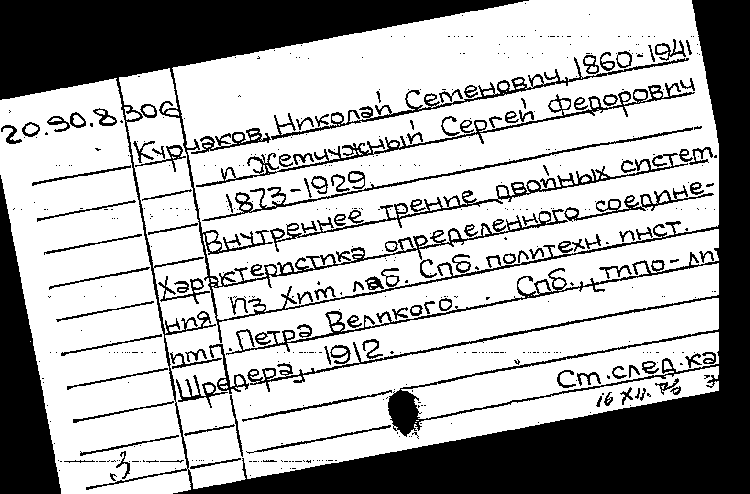 20.90.8.306
Курнаков, Николай Семенович, 1860-1941
и Жемчужный Сергей Федорович
1873-1929.
Внутреннее трение двойных систем.
Характеристика определенного соедине-
ния Из Хим. лаб. Спб. политехн. инст.
имп. Петра Великого. Спб., типо-лит
Шредера, 1912.
Ст. след. ка
16 XII. 73
3